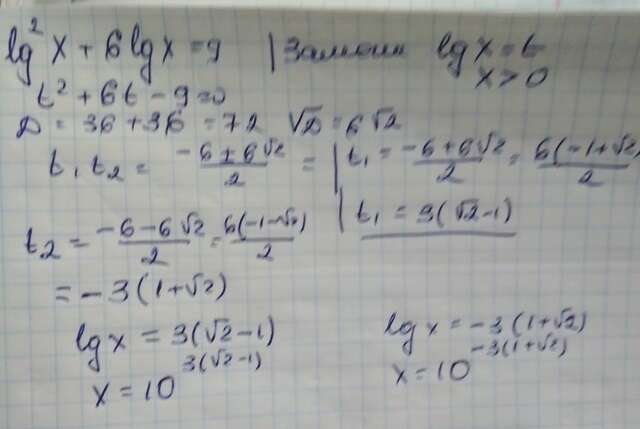 lg² x + 6 lg x = 9 | Замена lg x = t
x > 0
t² + 6t - 9 = 0
D = 36 + 36 = 72 √D = 6√2
t₁ t₂ = (-6 ± 6√2)/2 = | t₁ = (-6+6√2)/2 = 6(-1+√2)/2
| t₁ = 3(√2-1)
t₂ = (-6-6√2)/2 = 6(-1-√2)/2
= -3(1+√2)
lg x = 3(√2-1) lg x = -3(1+√2)
x = 10^(3(√2-1)) x = 10^(-3(1+√2))